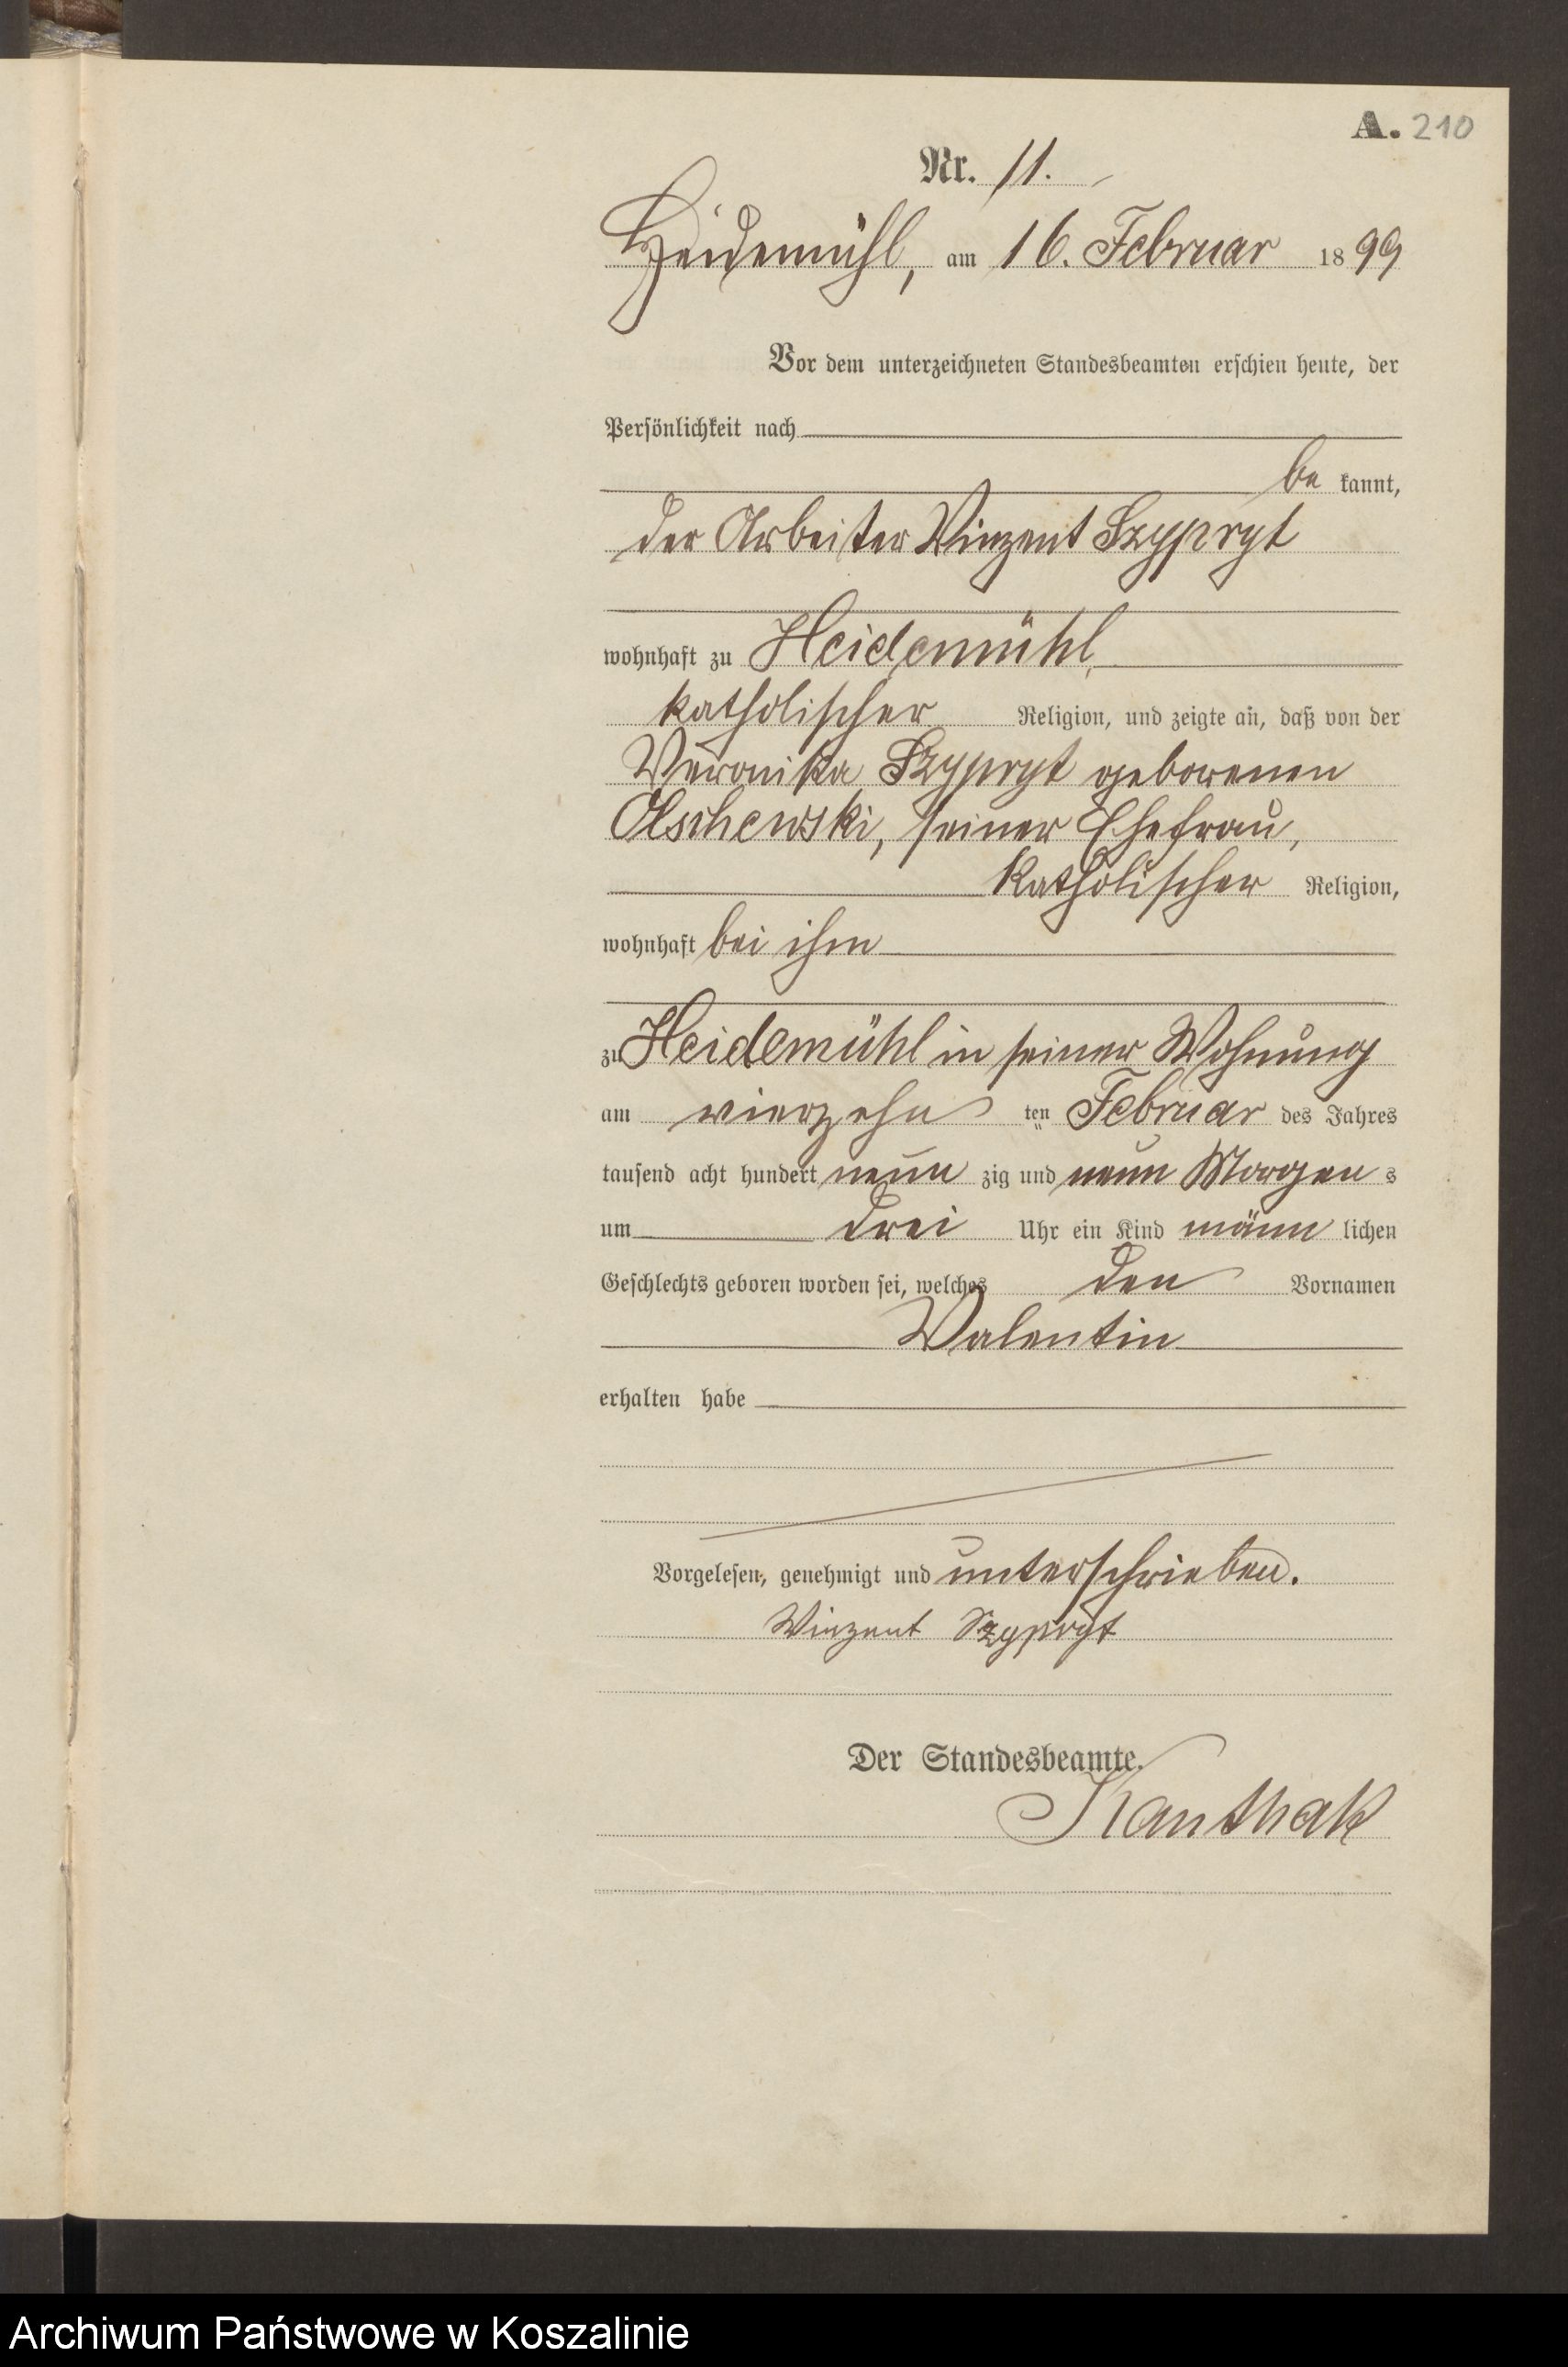 A. 210
Nr. 11.
Heidemühl, am 16. Februar 1899
Vor dem unterzeichneten Standesbeamten erschien heute, der
Persönlichkeit nach
be kannt,
der Arbeiter Vinzent Szypryt
wohnhaft zu Heidemühl,
katholischer Religion, und zeigte an, daß von der
Veronika Szypryt geborenen
Olschewski, seiner Ehefrau,
katholischer Religion,
wohnhaft bei ihm
zu Heidemühl in seiner Wohnung
am vierzehn ten Februar des Jahres
tausend acht hundert neun zig und neun Morgen s
um drei Uhr ein Kind männ lichen
Geschlechts geboren worden sei, welches den Vornamen
Valentin
erhalten habe
Vorgelesen, genehmigt und unterschrieben.
Winzent Szyprÿt
Der Standesbeamte.
Kanthak
Archiwum Państwowe w Koszalinie